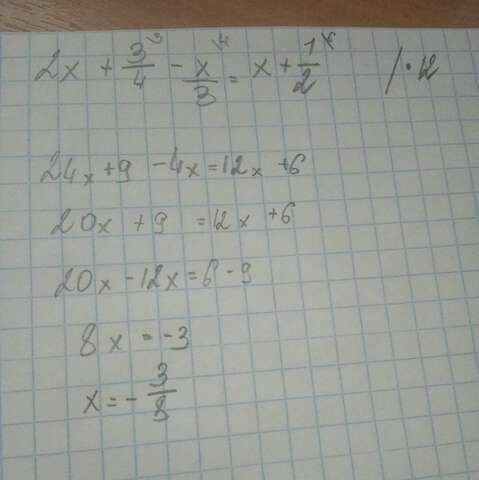 2x + 3/4 ³ - x/3 ⁴ = x + 1/2 ⁶ / · 12
24x + 9 - 4x = 12x + 6
20x + 9 = 12x + 6
20x - 12x = 6 - 9
8x = -3
x = - 3/8